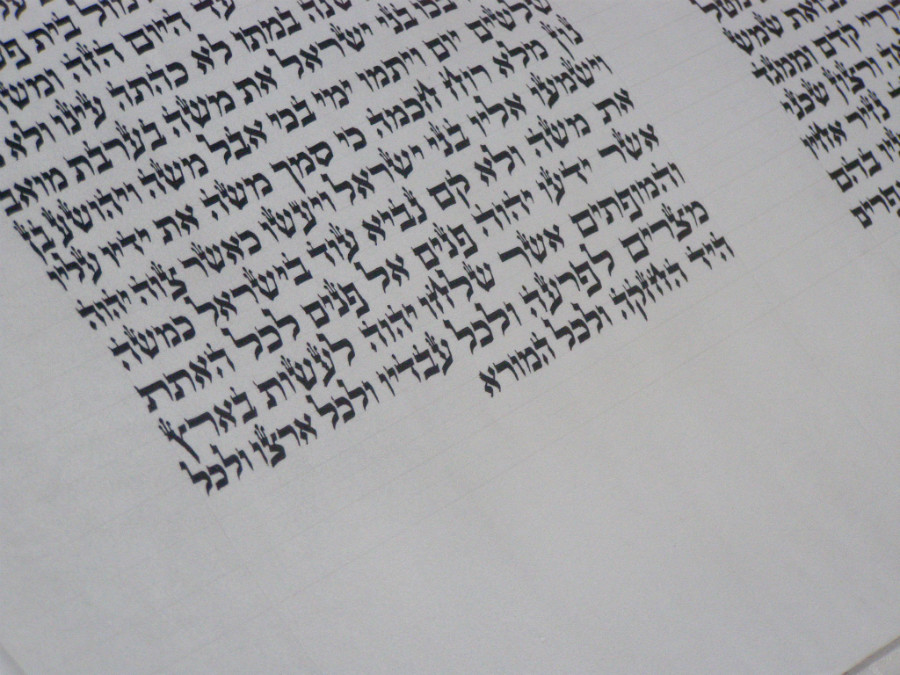 שמש
קדם וממגד
ורצון שכני
נזיר אחיו
בהם
אפרים
מול בית
עד היום הזה ומשה
שנה במתו לא כהתה עינו ולא
בני ישראל את משה בערבת מואב
שלשים יום ויתמו ימי בכי אבל משה ויהושע בן
נון מלא רוח חכמה כי סמך משה את ידיו עליו
וישמעו אליו בני ישראל ויעשו כאשר צוה יהוה
את משה ולא קם נביא עוד בישראל כמשה
אשר ידעו יהוה פנים אל פנים לכל האתת
והמופתים אשר שלחו יהוה לעשות בארץ
מצרים לפרעה ולכל עבדיו ולכל ארצו ולכל
היד החזקה ולכל המורא